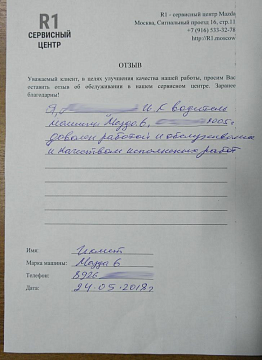 R1
СЕРВИСНЫЙ
ЦЕНТР
R1 - сервисный центр Mazda
Москва, Сигнальный проезд 16, стр.11
+7 (916) 533-32-78
http://R1.moscow
ОТЗЫВ
Уважаемый клиент, в целях улучшения качества нашей работы, просим Вас
оставить отзыв об обслуживании в нашем сервисном центре. Заранее
благодарны!
Я, И.К водитель
машины Мазда 6, 2005г.
доволен работой и обслуживанием
и качеством исполненных работ
Имя: Икмет
Марка машины: Мазда 6
Телефон: 8926
Дата: 24.05.2018г